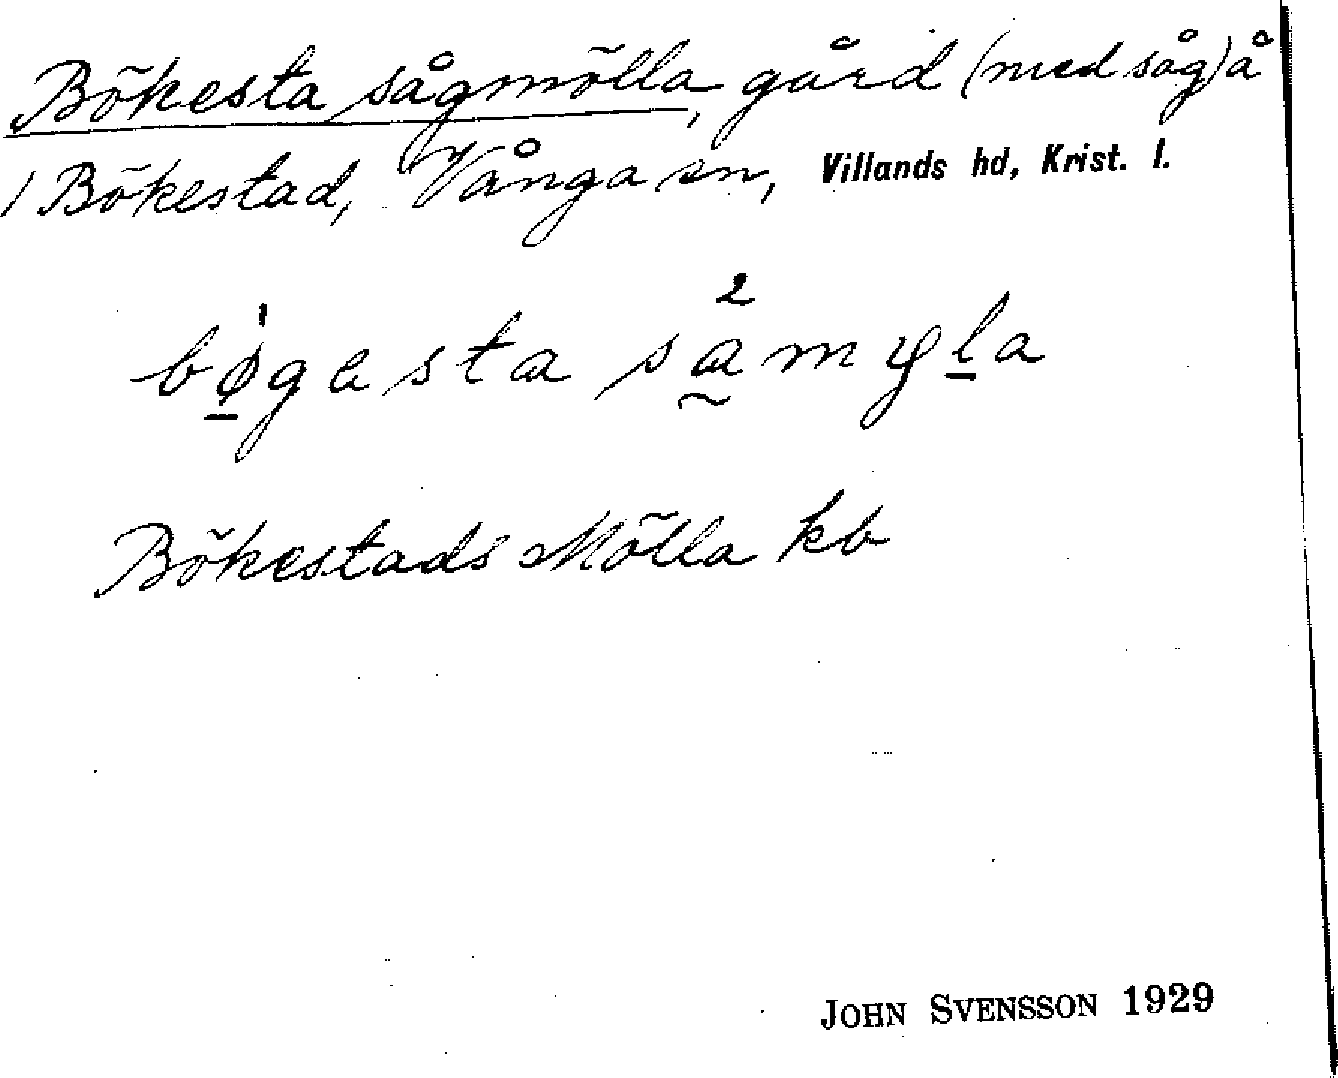 Bökesta sågmölla, gård (med såg) å
1 Bökestad, Vånga sn, Villands hd, Krist. l.
bø̱gesta sa̰myḻa
Bökestads Mölla kb
JOHN SVENSSON 1929